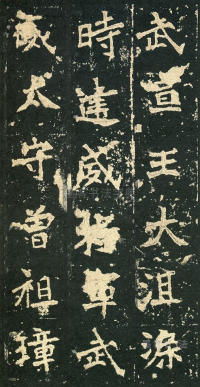 武宣王大沮渠
時建威將軍武
威太守曾祖璋